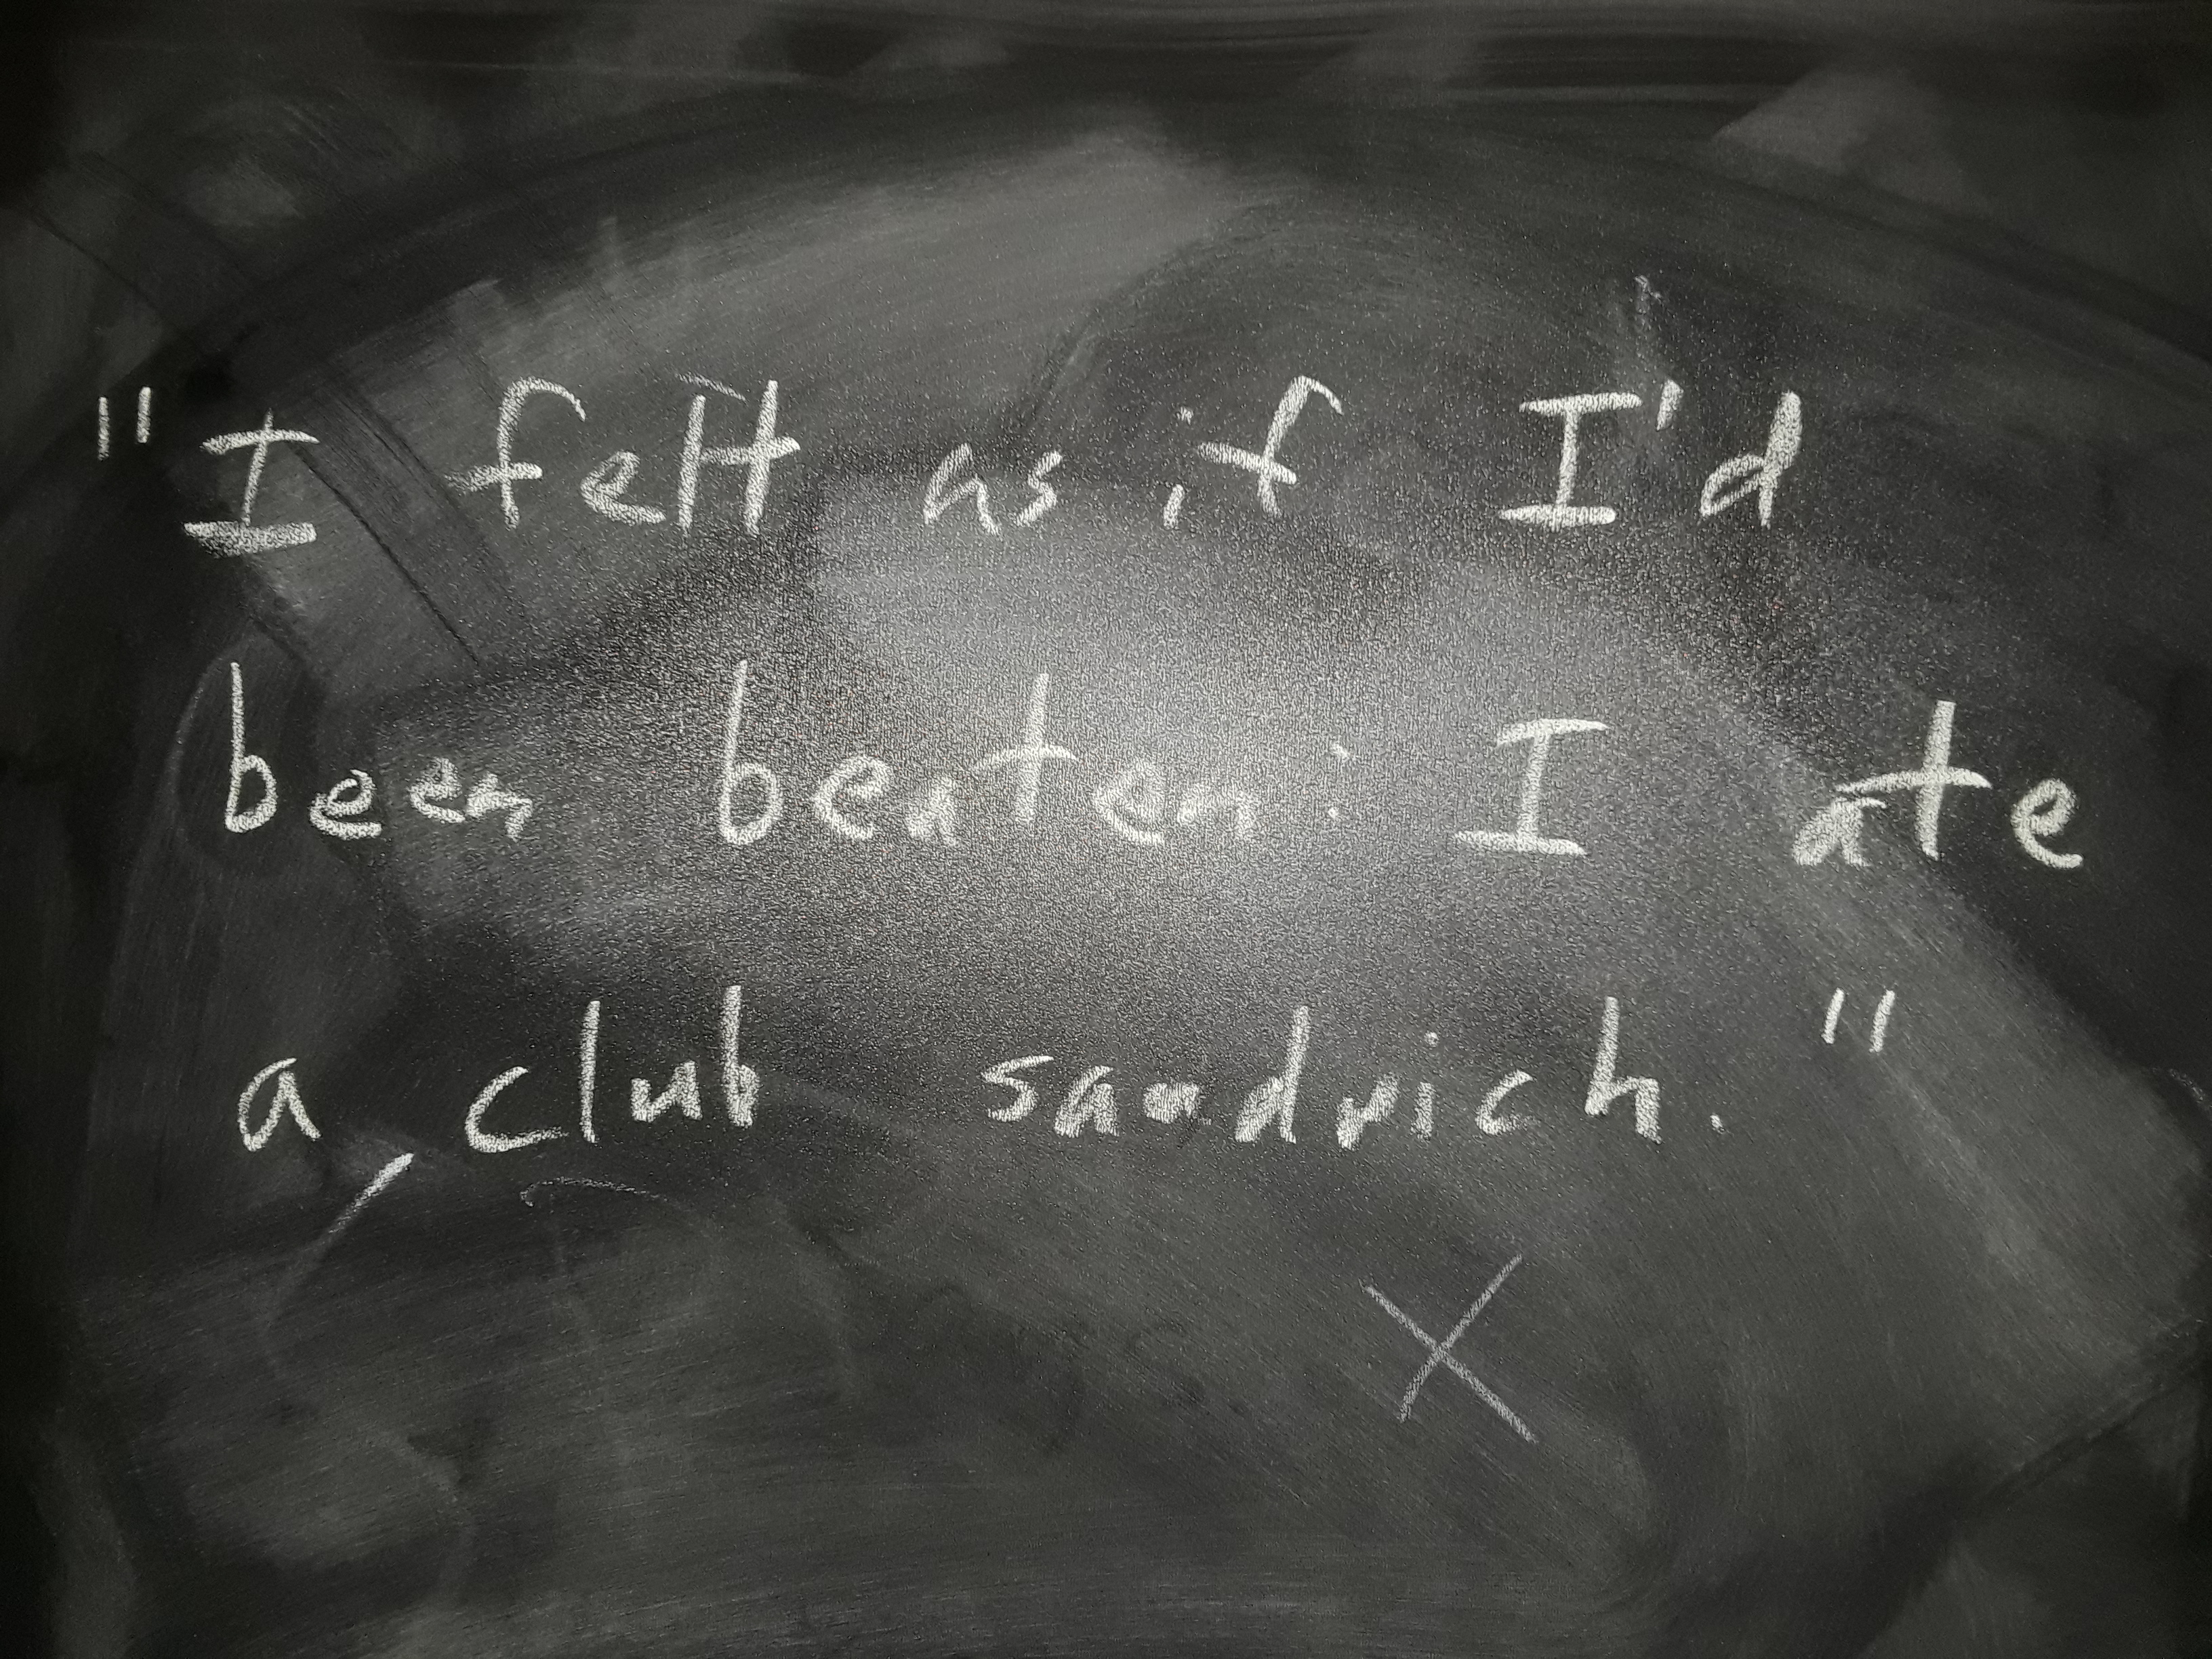 "I felt as if I'd
been beaten: I ate
a club sandwich."
X